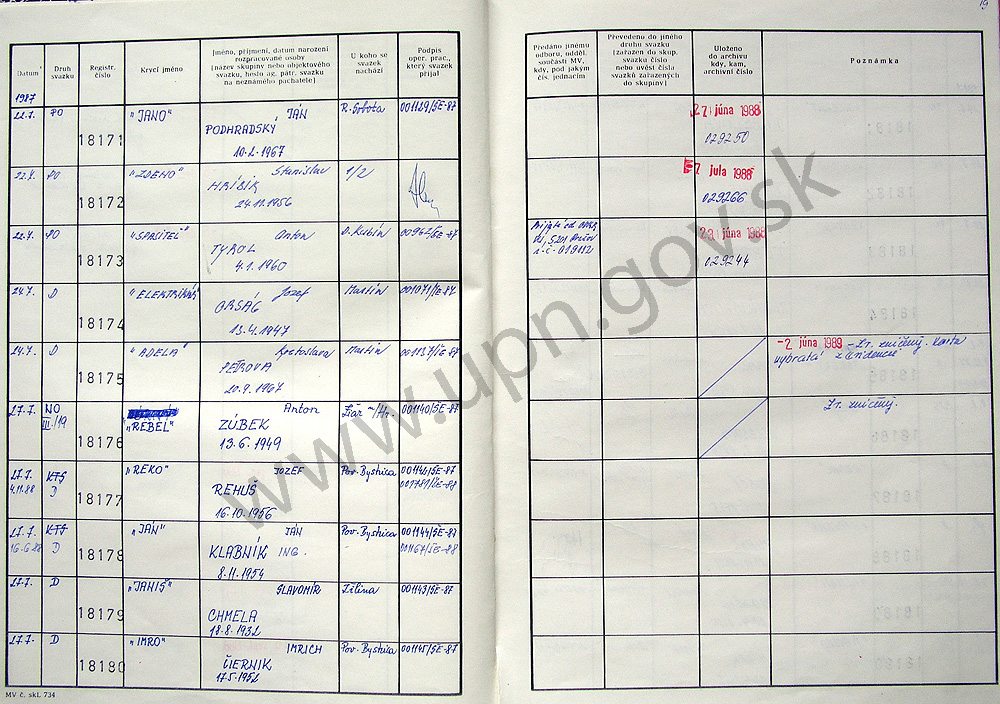 19
Datum
Druh svazku
Registr. číslo
Krycí jméno
Jméno, příjmení, datum narození
rozpracované osoby
[název skupiny nebo objektového
svazku, heslo ag. pátr. svazku
na neznámého pachatele]
U koho se
svazek
nachází
Podpis
oper. prac.,
který svazek
přijal
Předáno jinému
odboru, odděl.
součásti MV,
kdy, pod jakým
čís. jednacím
Převedeno do jiného
druhu svazku
[zařazen do skup.
svazku číslo
nebo uvést čísla
svazků zařazených
do skupiny]
Uloženo
do archivu
kdy, kam,
archivní číslo
Poznámka
1987
22.7. PO 18171 "JANO" JÁN R. Sobota 001129/ŠE-87 27. júna 1988
PODHRADSKÝ 029250
10.2.1967
22.7. PO 18172 "ZDENO" Stanislav 1/2 7 jula 1988
HRÍBIK 029266
24.11.1956
22.7. PO 18173 "SPASITEĽ" Anton D. Kubín 00962/ŠE-87 júna 1988
TYROL 029244
4.1.1960
24.7. D 18174 "ELEKTRIKÁR" Jozef Martin 001071/ŠE-87
ORSÁG
13.4.1947
24.7. D 18175 "ADELA" Kvetoslava Martin 001137/ŠE-87 -2 júna 1989 - Zv. zničený. Karta
PETROVÁ vybratá z evidencie
20.9.1967
27.7. NO 18176 "REBEL" Anton Žiar n/Hr. 001140/ŠE-87 Zv. zničený.
III./19 ZÚBEK
13.6.1949
27.7. KTS 18177 "REKO" JOZEF Pov. Bystrica 001146/ŠE-87
4.11.88 D REHUŠ
16.10.1956
27.7. KTS 18178 "JÁN" JÁN Pov. Bystrica 001144/ŠE-87
16.6.88 D KLABNÍK ING. 001167/ŠE-88
8.11.1954
27.7. D 18179 "JANIŠ" SLAVOMÍR Žilina 001143/ŠE-87
CHMELA
18.8.1932
27.7. D 18180 "IMRO" IMRICH Pov. Bystrica 001145/ŠE-87
ČIERNIK
17.5.1952
MV č. skl. 734
www.upn.gov.sk